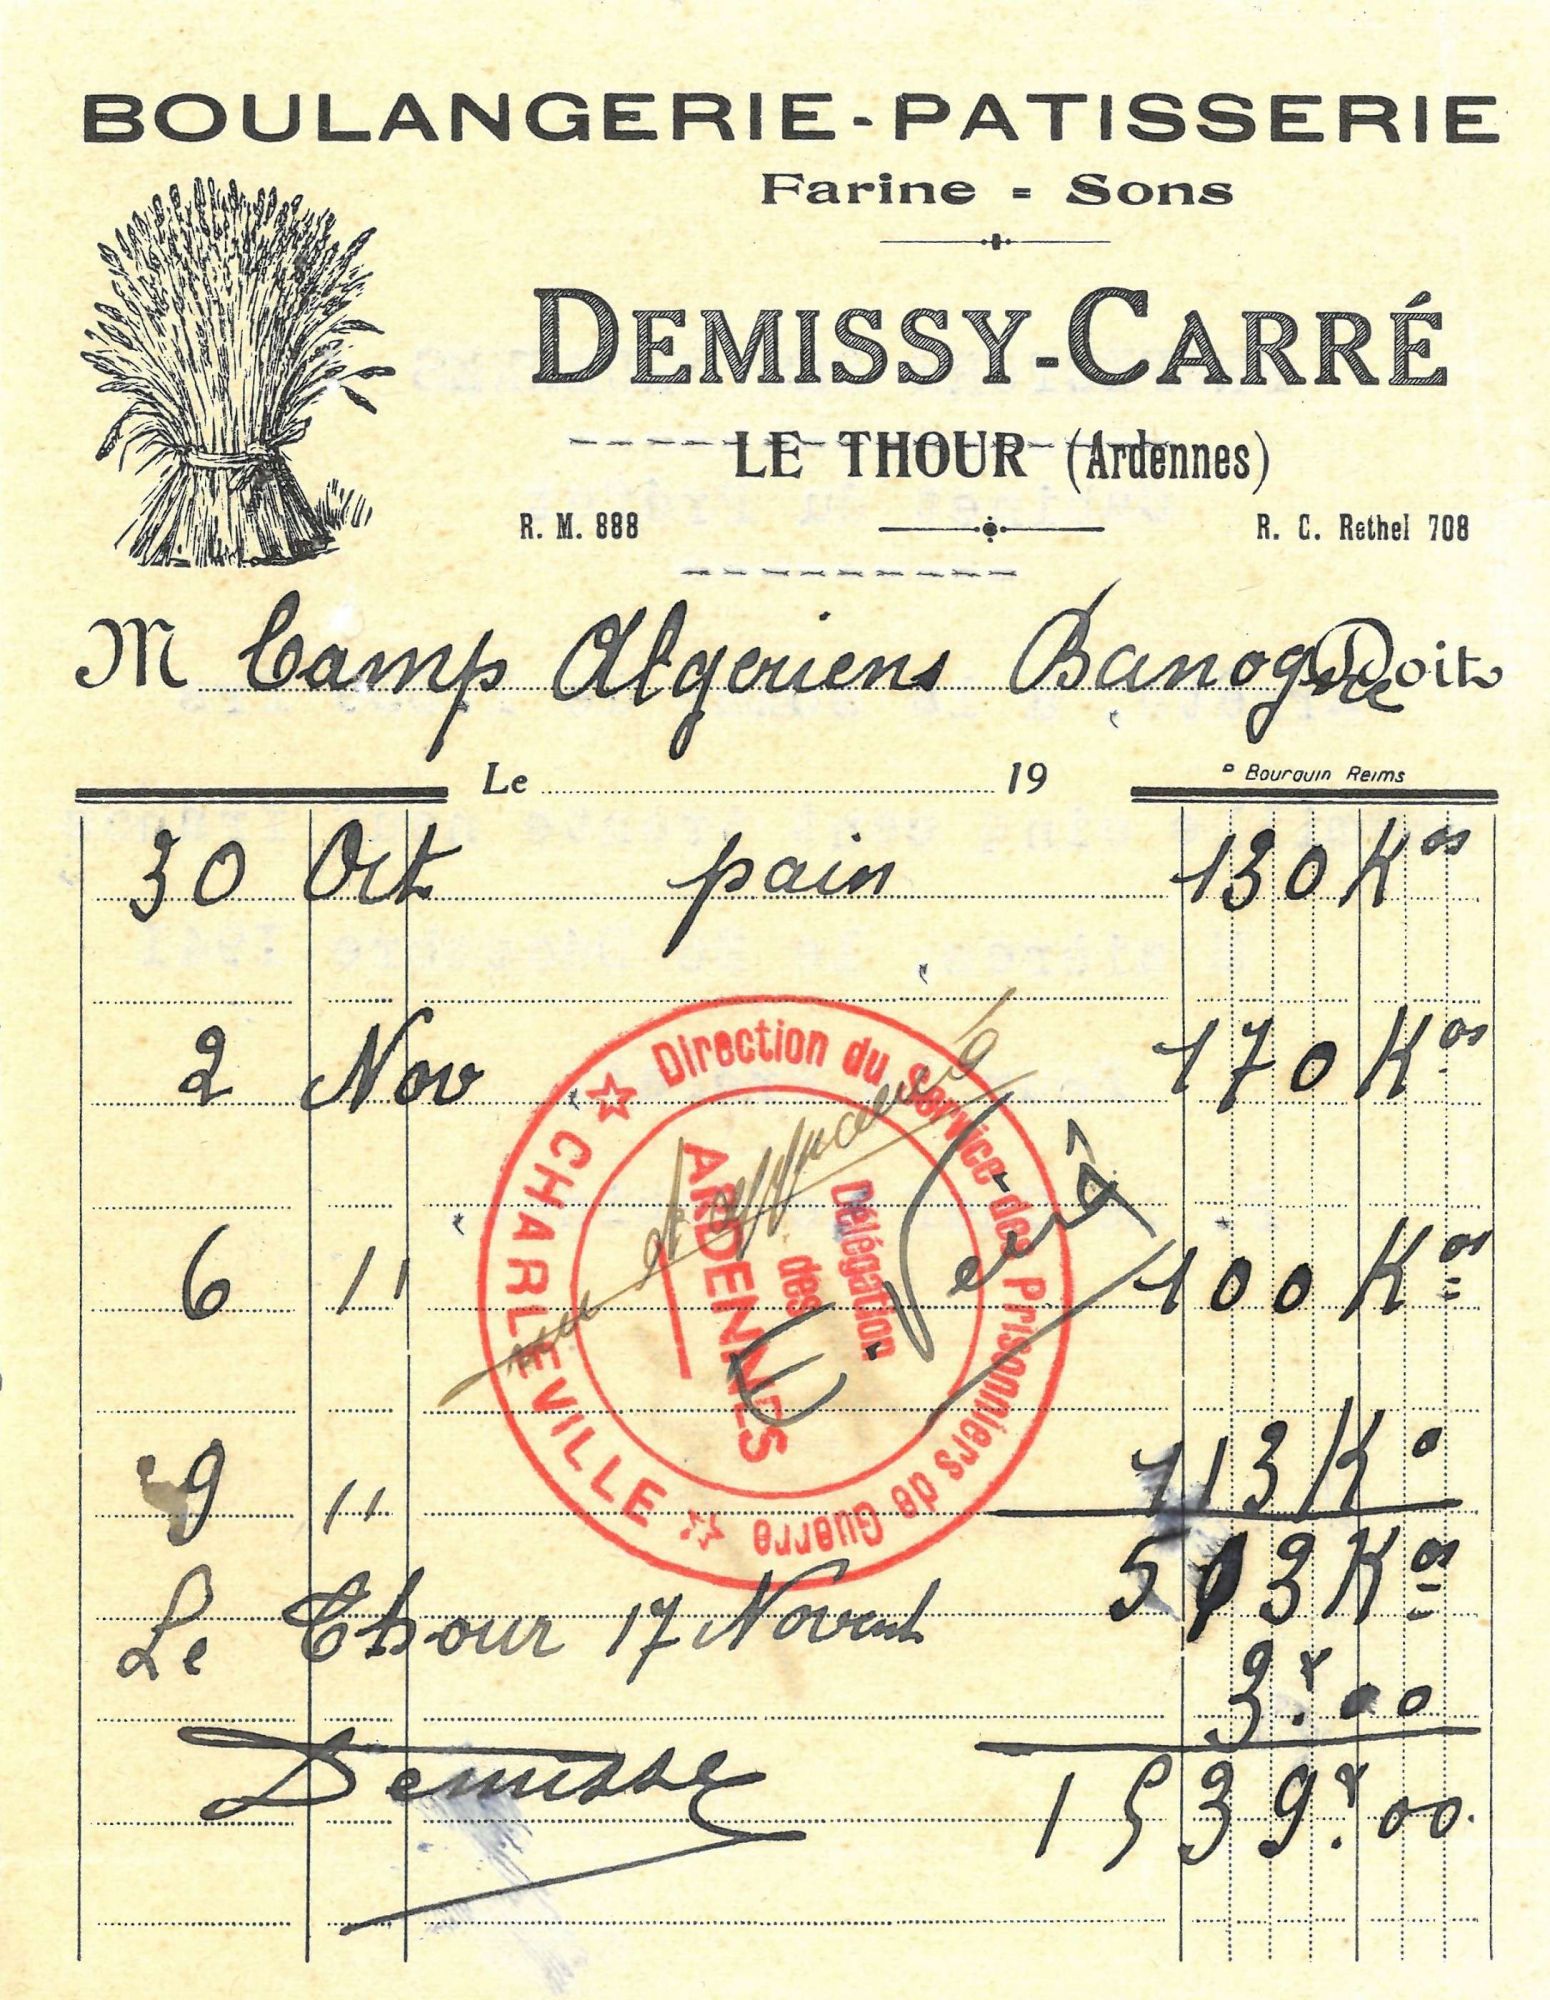 BOULANGERIE-PATISSERIE
Farine = Sons
DEMISSY-CARRÉ
LE THOUR (Ardennes)
R. M. 888
R. C. Rethel 708
M Camp Algeriens Banogne Doit
Le 19
Bourquin Reims
30 Oct pain 130 Kos
2 Nov 170 Kos
6 " 100 Kos
9 " 113 Ko
513 Kos
Le Thour 17 Novemb
3f.00
1539f.00.
Demissy
☆ Direction du Service des Prisonniers de Guerre ☆ CHARLEVILLE
Délégation
des
ARDENNES